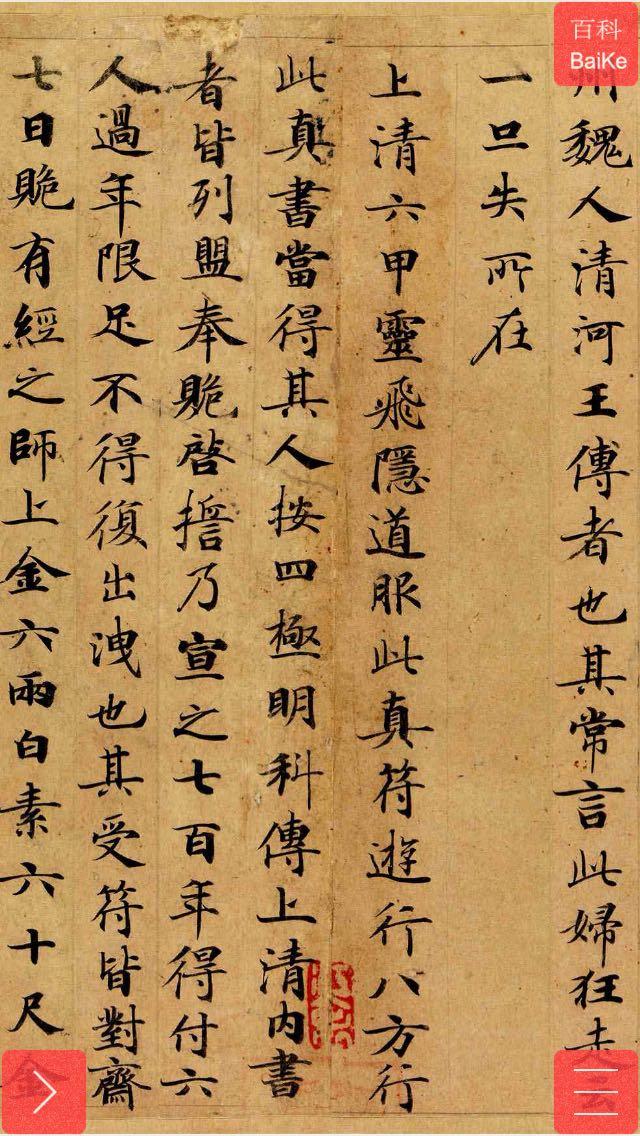 百科
BaiKe
州魏人清河王傅者也其常言此婦狂走云
一旦失所在
上清六甲靈飛隱道服此真符遊行八方行
此真書當得其人按四極明科傳上清內書
者皆列盟奉䞈啓誓乃宣之七百年得付六
人過年限足不得復出洩也其受符皆對齋
七日䞈有經之師上金六兩白素六十尺金